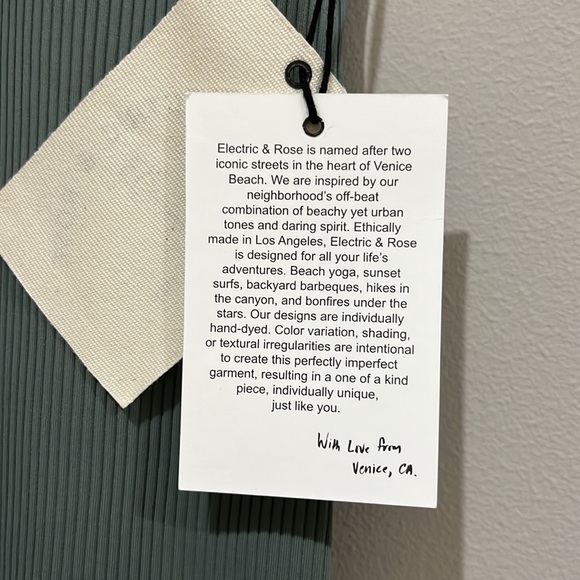 Electric & Rose is named after two
iconic streets in the heart of Venice
Beach. We are inspired by our
neighborhood's off-beat
combination of beachy yet urban
tones and daring spirit. Ethically
made in Los Angeles, Electric & Rose
is designed for all your life's
adventures. Beach yoga, sunset
surfs, backyard barbeques, hikes in
the canyon, and bonfires under the
stars. Our designs are individually
hand-dyed. Color variation, shading,
or textural irregularities are intentional
to create this perfectly imperfect
garment, resulting in a one of a kind
piece, individually unique,
just like you.
With Love from
Venice, CA.